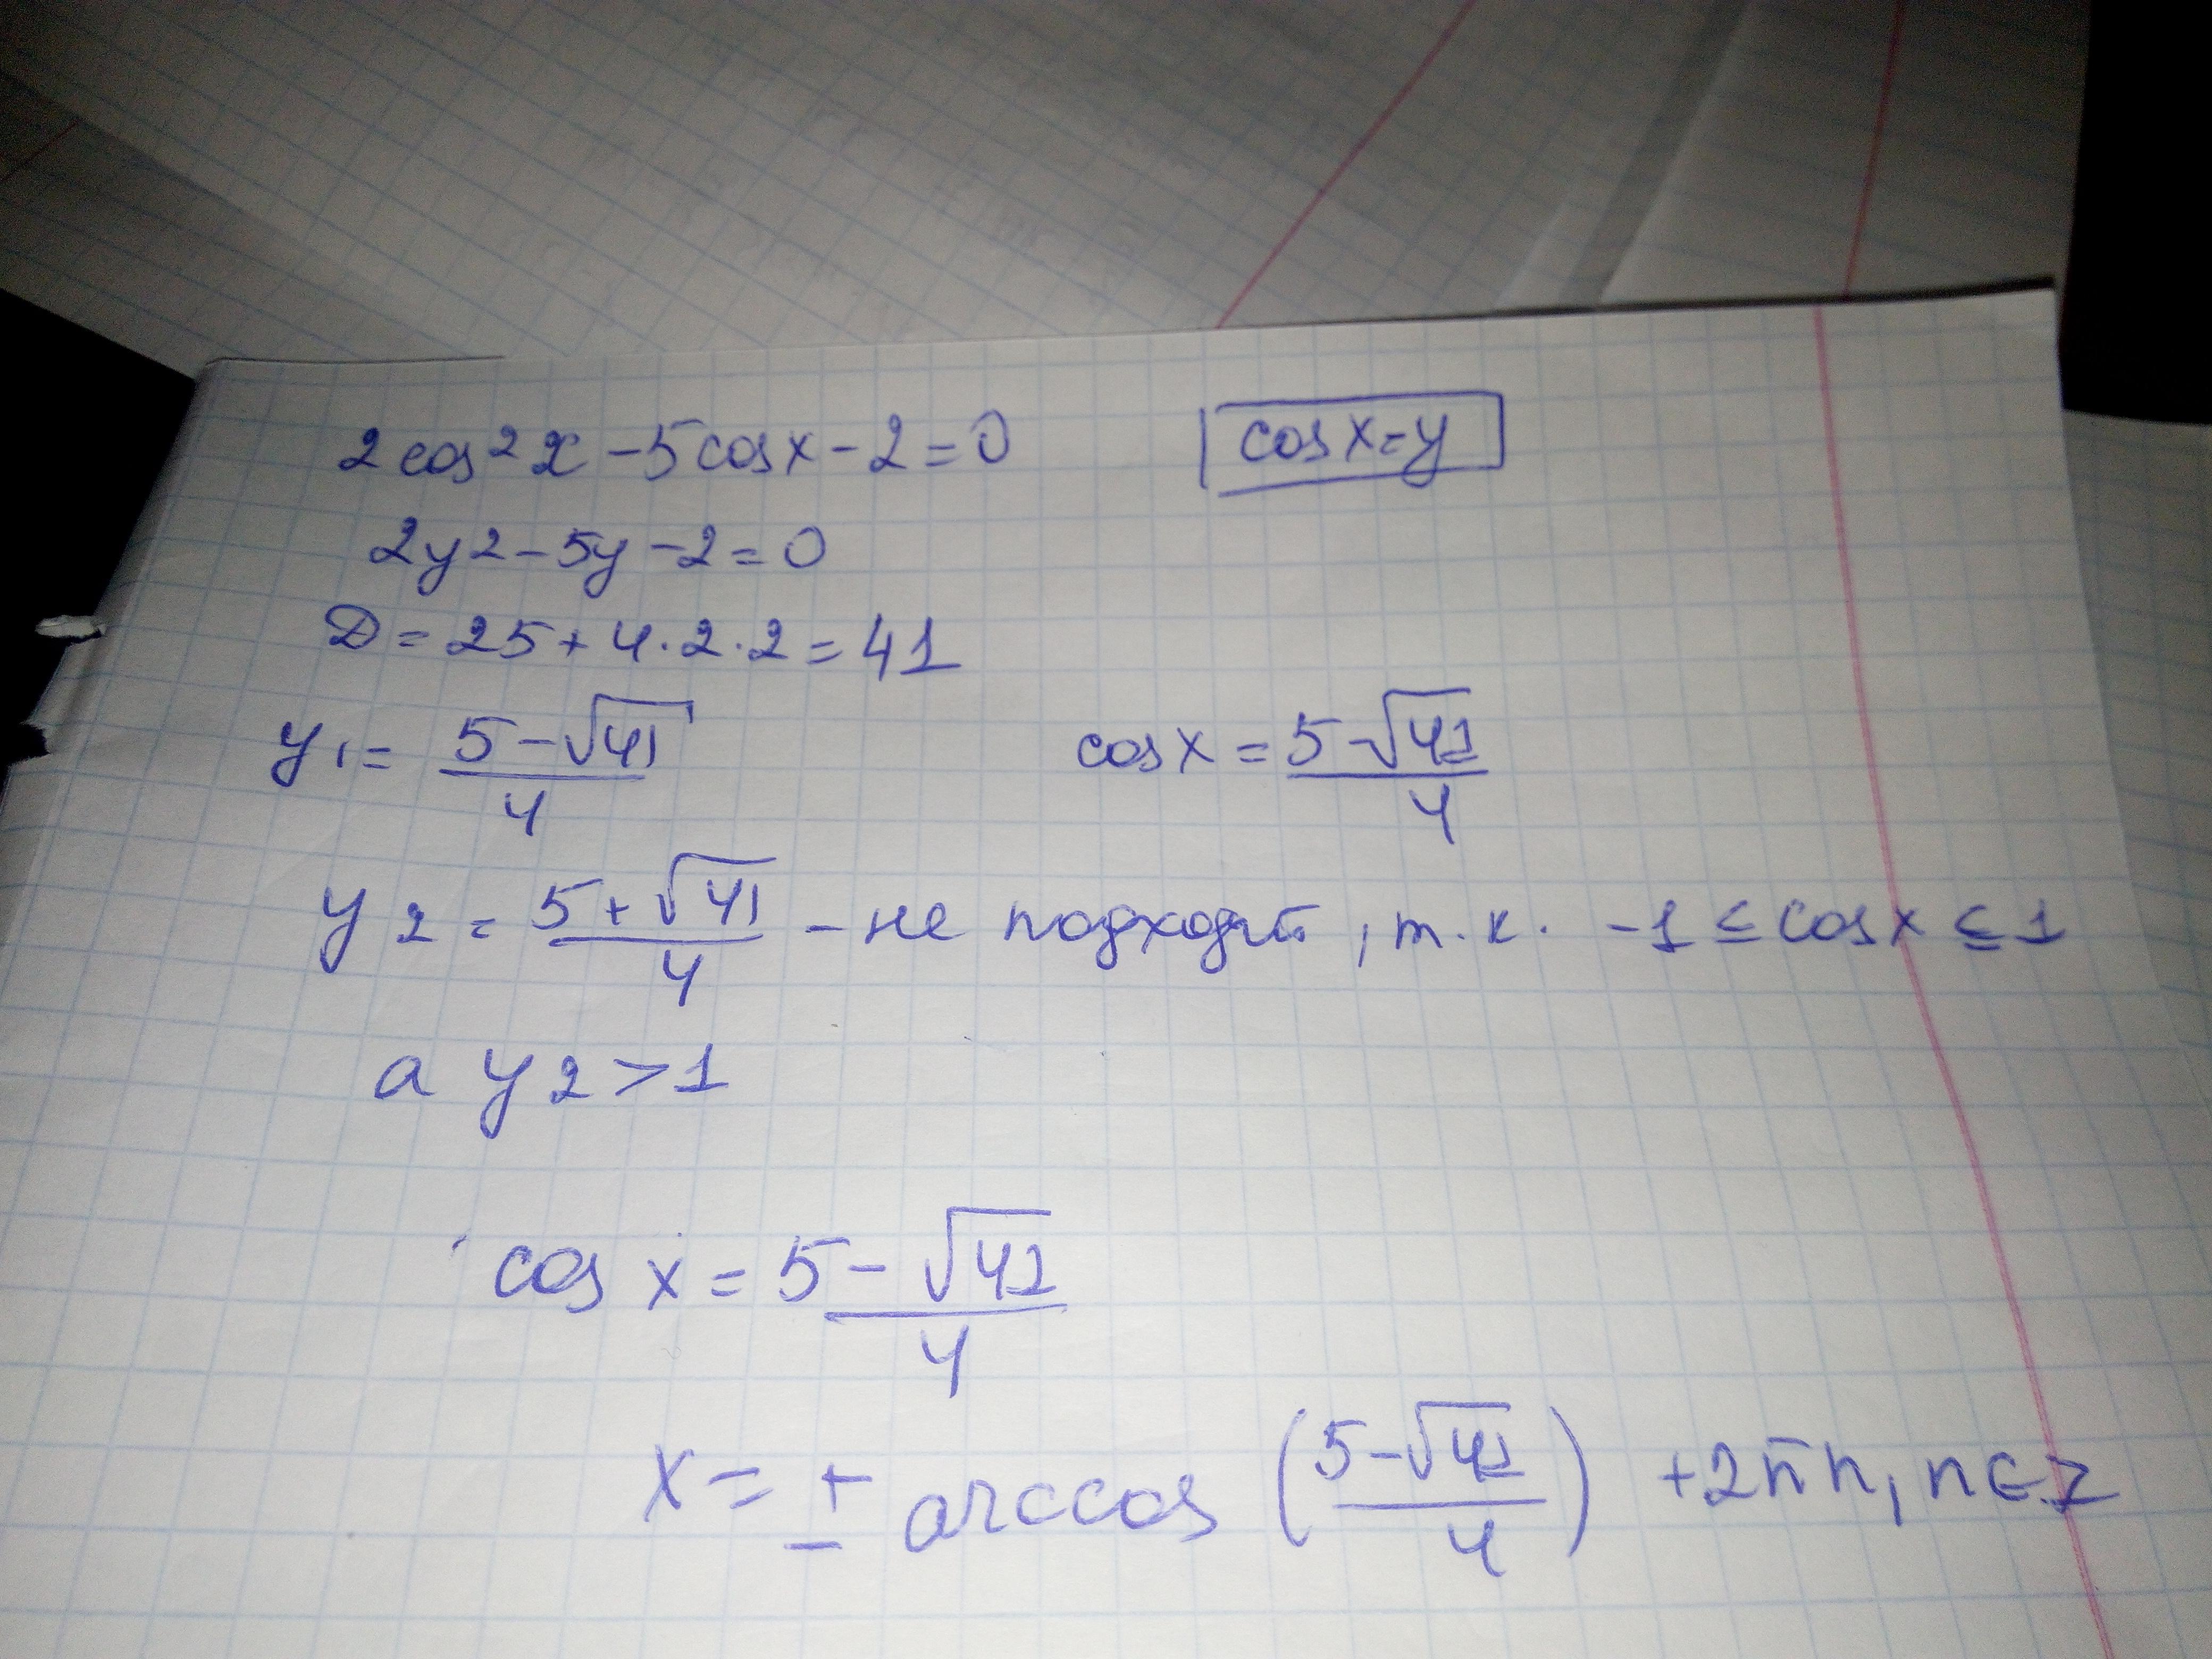 2cos²x - 5cosx - 2 = 0    cosx = y
2y² - 5y - 2 = 0
D = 25 + 4·2·2 = 41
y₁ = (5 - √41)/4    cosx = (5 - √41)/4
y₂ = (5 + √41)/4 - не подходит, т.к. -1 ≤ cosx ≤ 1
а y₂ > 1
cos x = (5 - √41)/4
x = ± arccos ((5 - √41)/4) + 2πn, n∈Z